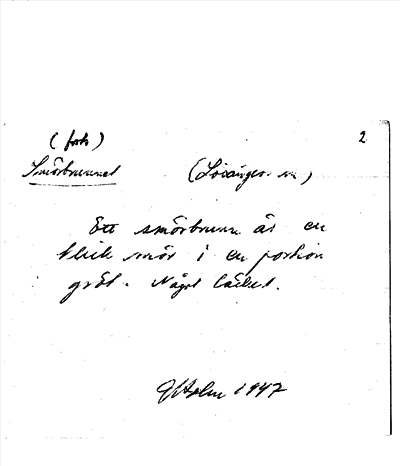 (forts) 2
Smörbrunnet (Lövånger sn)
Ett smörbrunn är en
klick smör i en portion
gröt. Något läckert.
G Holm 1947